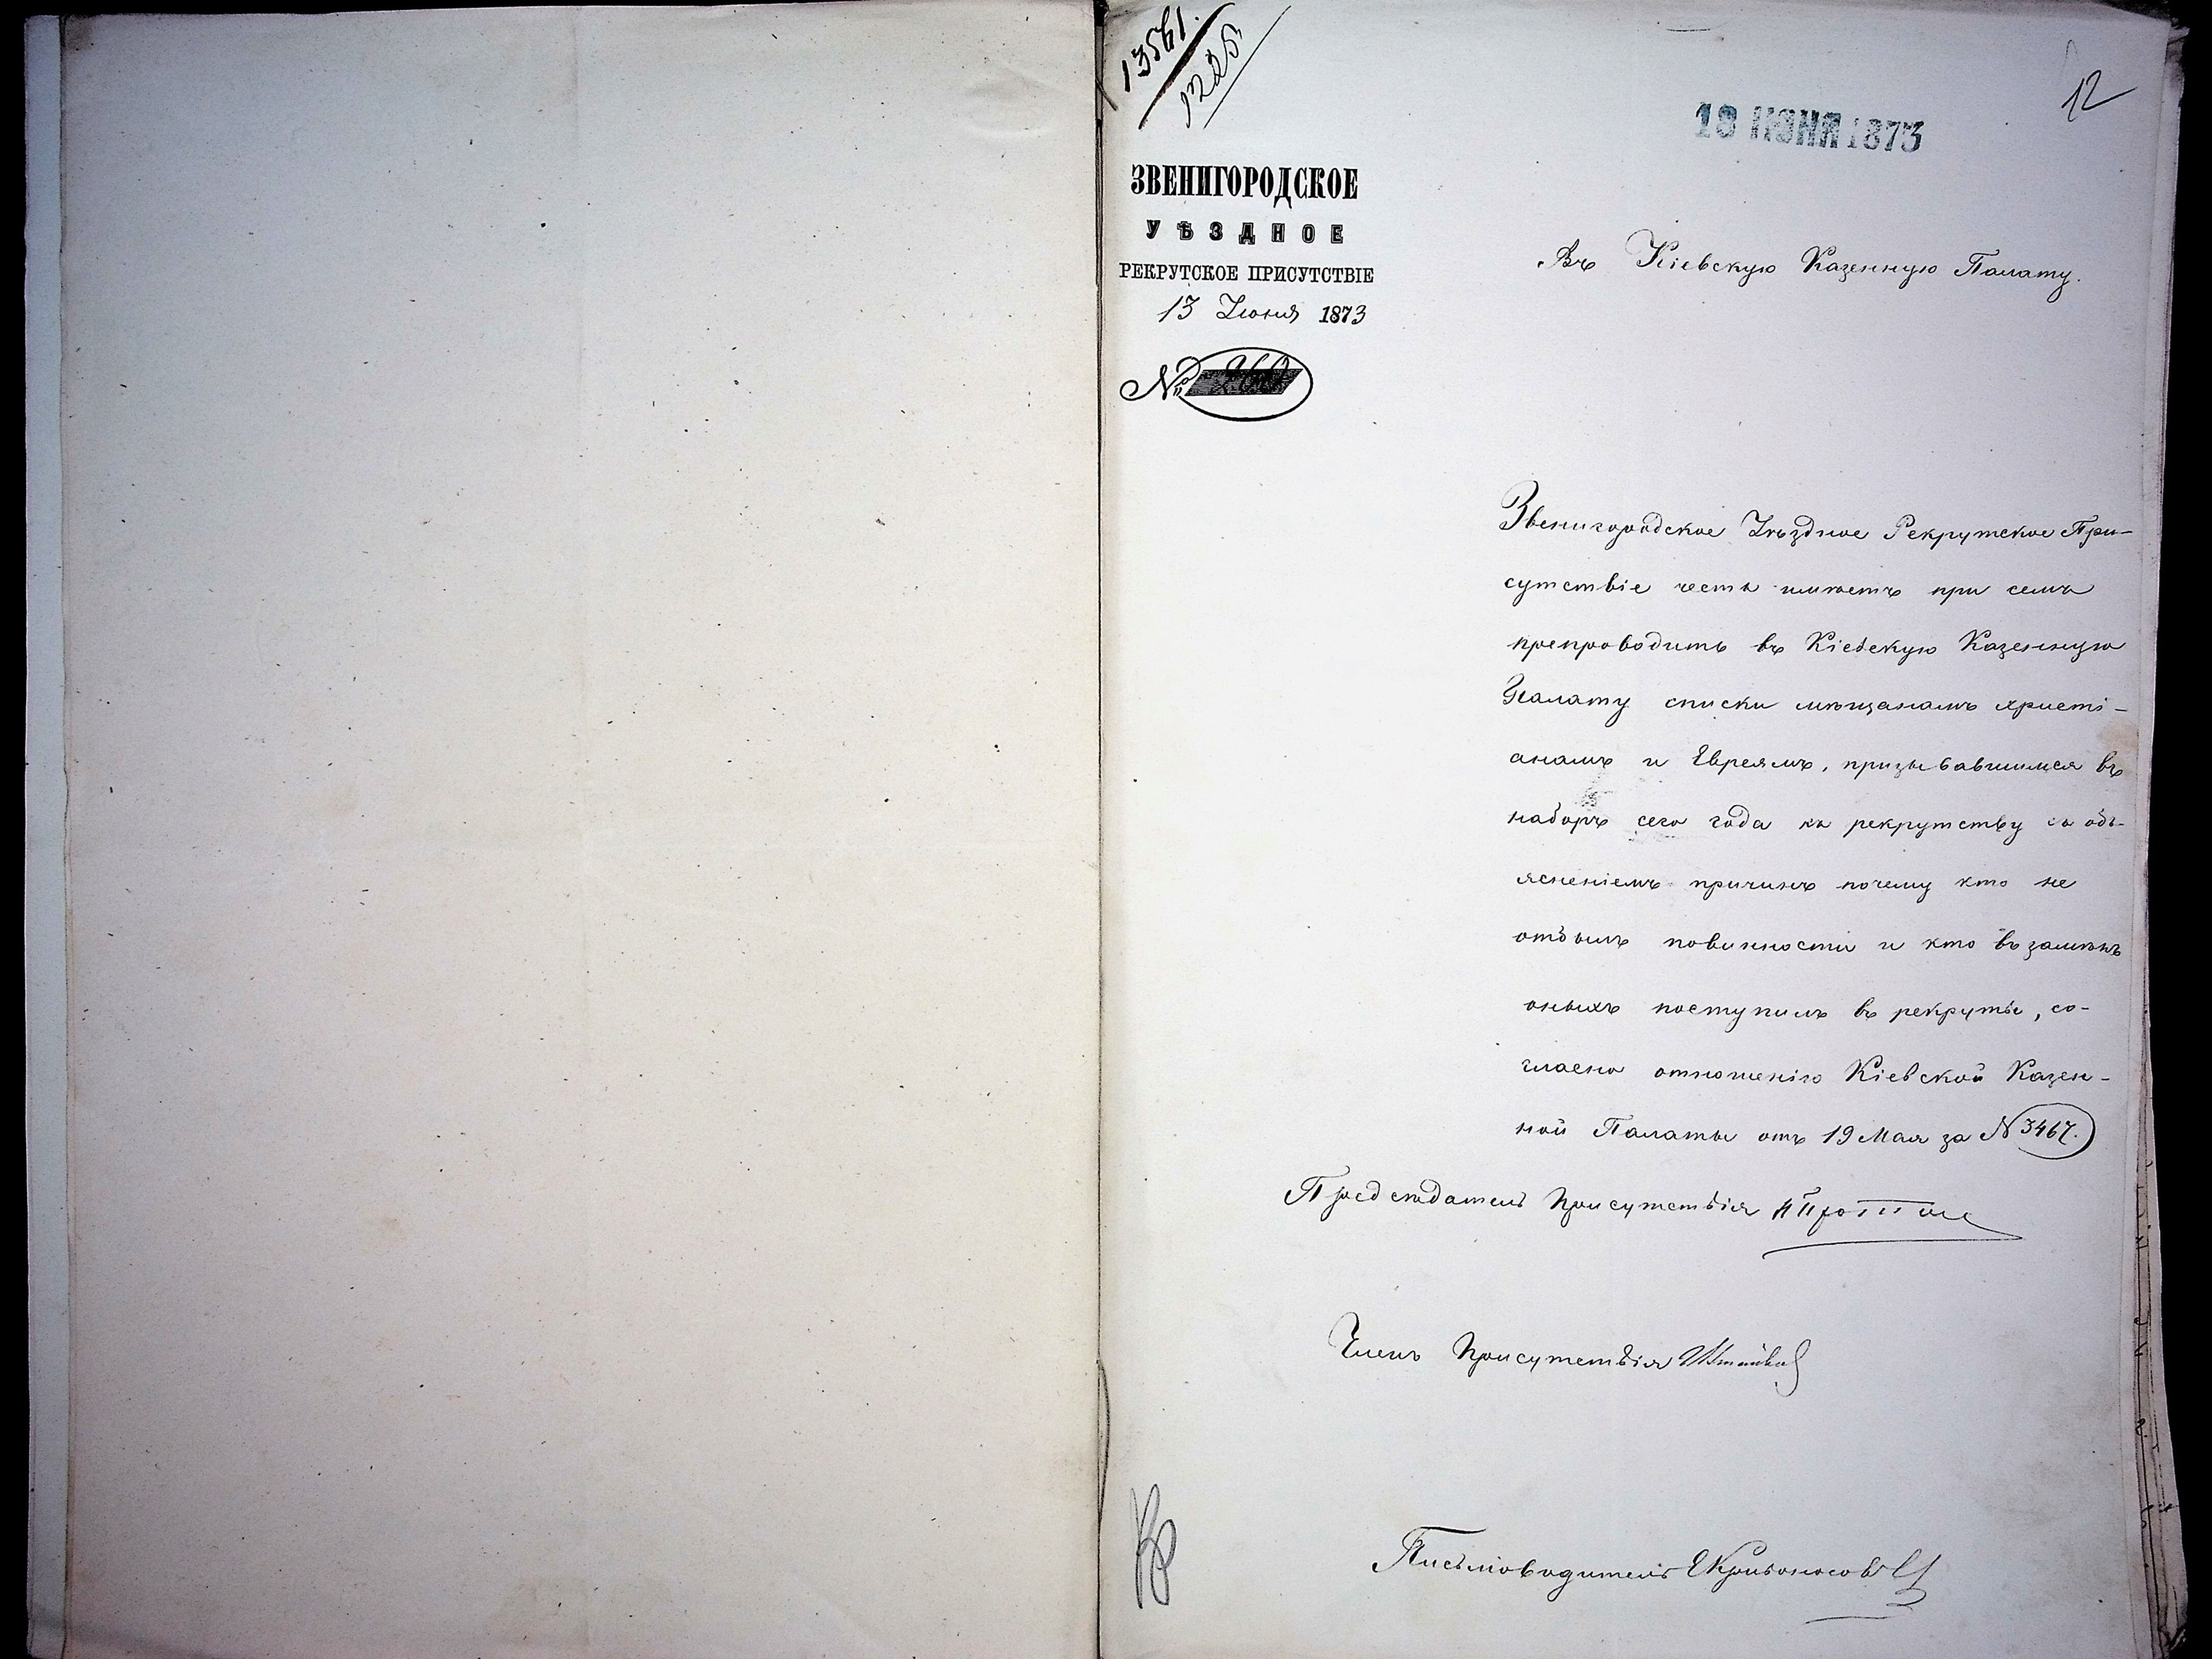 13561.
1225
12
18 ИЮНЯ 1873
ЗВЕНИГОРОДСКОЕ
УѢЗДНОЕ
РЕКРУТСКОЕ ПРИСУТСТВІЕ
13 Іюня 1873
№ 260
Въ Кіевскую Казенную Палату.
Звенигородское Уѣздное Рекрутское При-
сутствіе честь имѣетъ при семъ
препроводить въ Кіевскую Казенную
Палату списки мѣщанамъ христі-
анамъ и Евреямъ, призывавшимся въ
наборъ сего года къ рекрутству съ объ-
ясненіемъ причинъ почему кто не
отбылъ повинности и кто взамѣнъ
оныхъ поступилъ въ рекруты, со-
гласно отношенію Кіевской Казен-
ной Палаты отъ 19 Мая за N 3467.
Предсѣдатель Присутствія
Членъ Присутствія
Письмоводитель Кривоносовъ